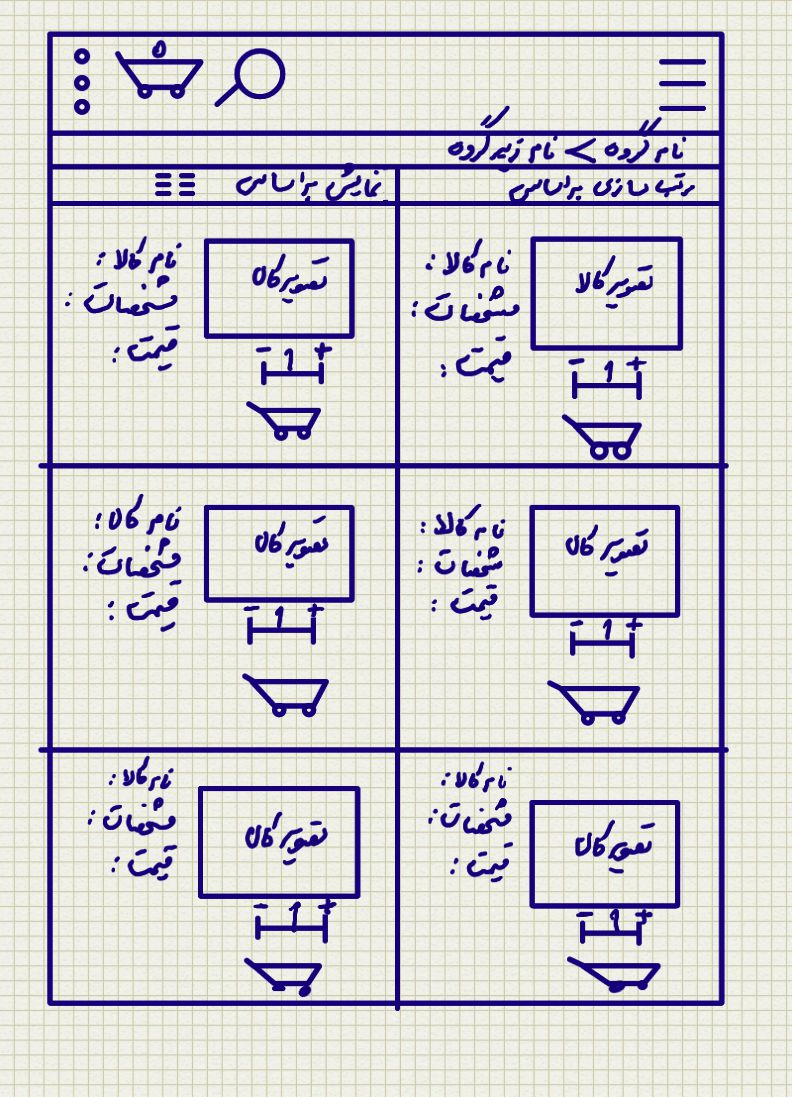 0
نام گروه > نام زیرگروه
مرتب سازی براساس
نمایش براساس
تصویر کالا
نام کالا:
مشخصات:
قیمت:
- 1 +
تصویر کالا
نام کالا:
مشخصات:
قیمت:
- 1 +
تصویر کالا
نام کالا:
مشخصات:
قیمت:
- 1 +
تصویر کالا
نام کالا:
مشخصات:
قیمت:
- 1 +
تصویر کالا
نام کالا:
مشخصات:
قیمت:
- 1 +
تصویر کالا
نام کالا:
مشخصات:
قیمت:
- 1 +